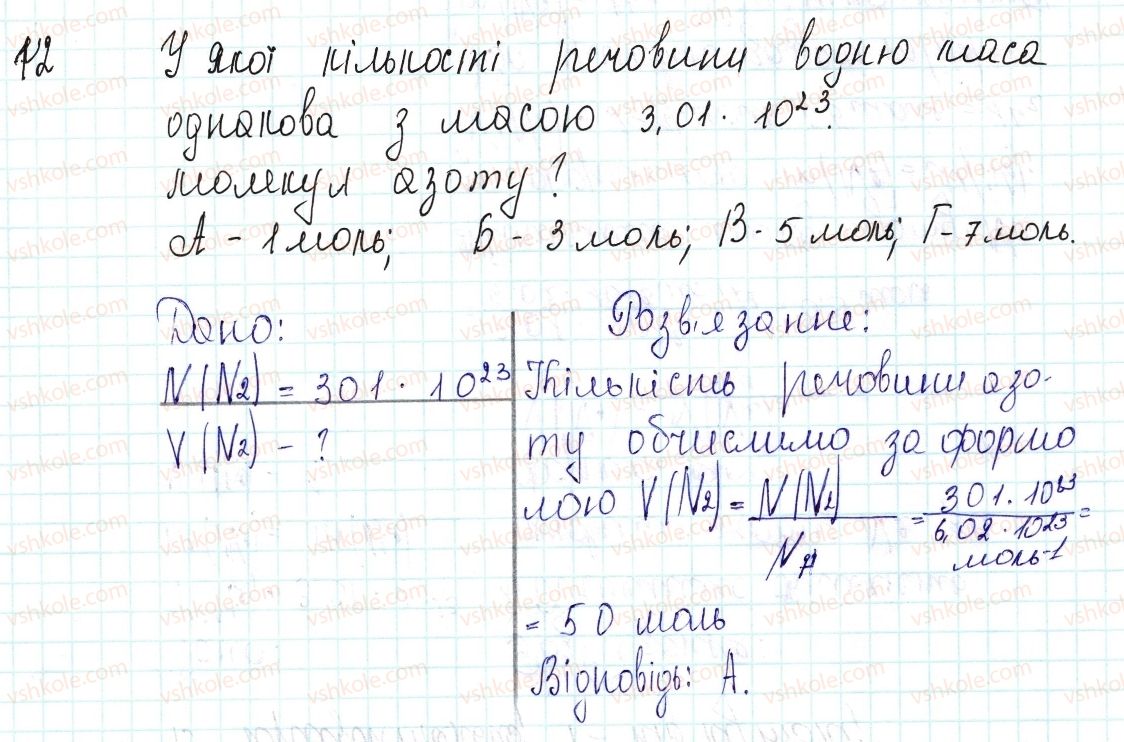 12 У якої кількості речовини водню маса
однакова з масою 3,01 · 10²³
молекул азоту?
А - 1 моль; Б - 3 моль; В - 5 моль; Г - 7 моль.
Дано:
N(N₂) = 301 · 10²³
V(N₂) - ?
Розв'язання:
Кількість речовини азо-
ту обчислимо за формо
лою V(N₂) = N(N₂) / NА = 301 · 10²³ / 6,02 · 10²³ моль-1 =
= 50 моль
Відповідь: А.
vshkole.com